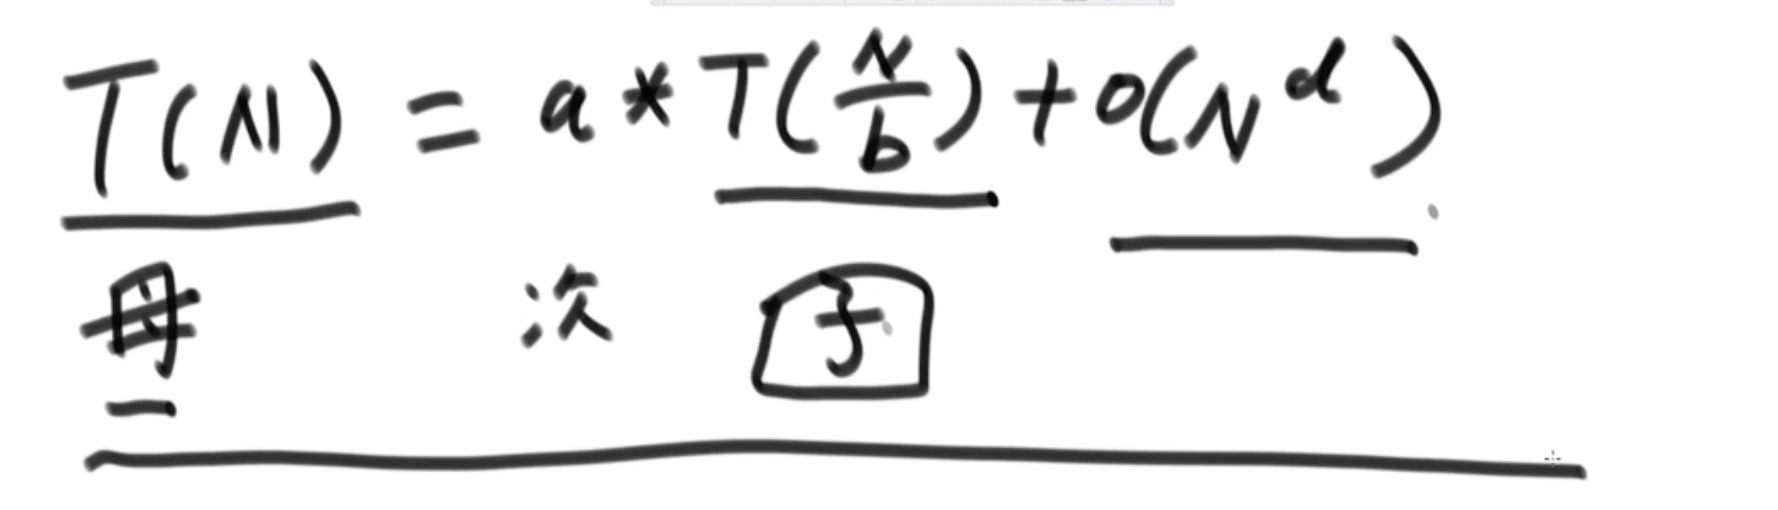 T(N) = a * T(N/b) + O(N^d)
母 次 子